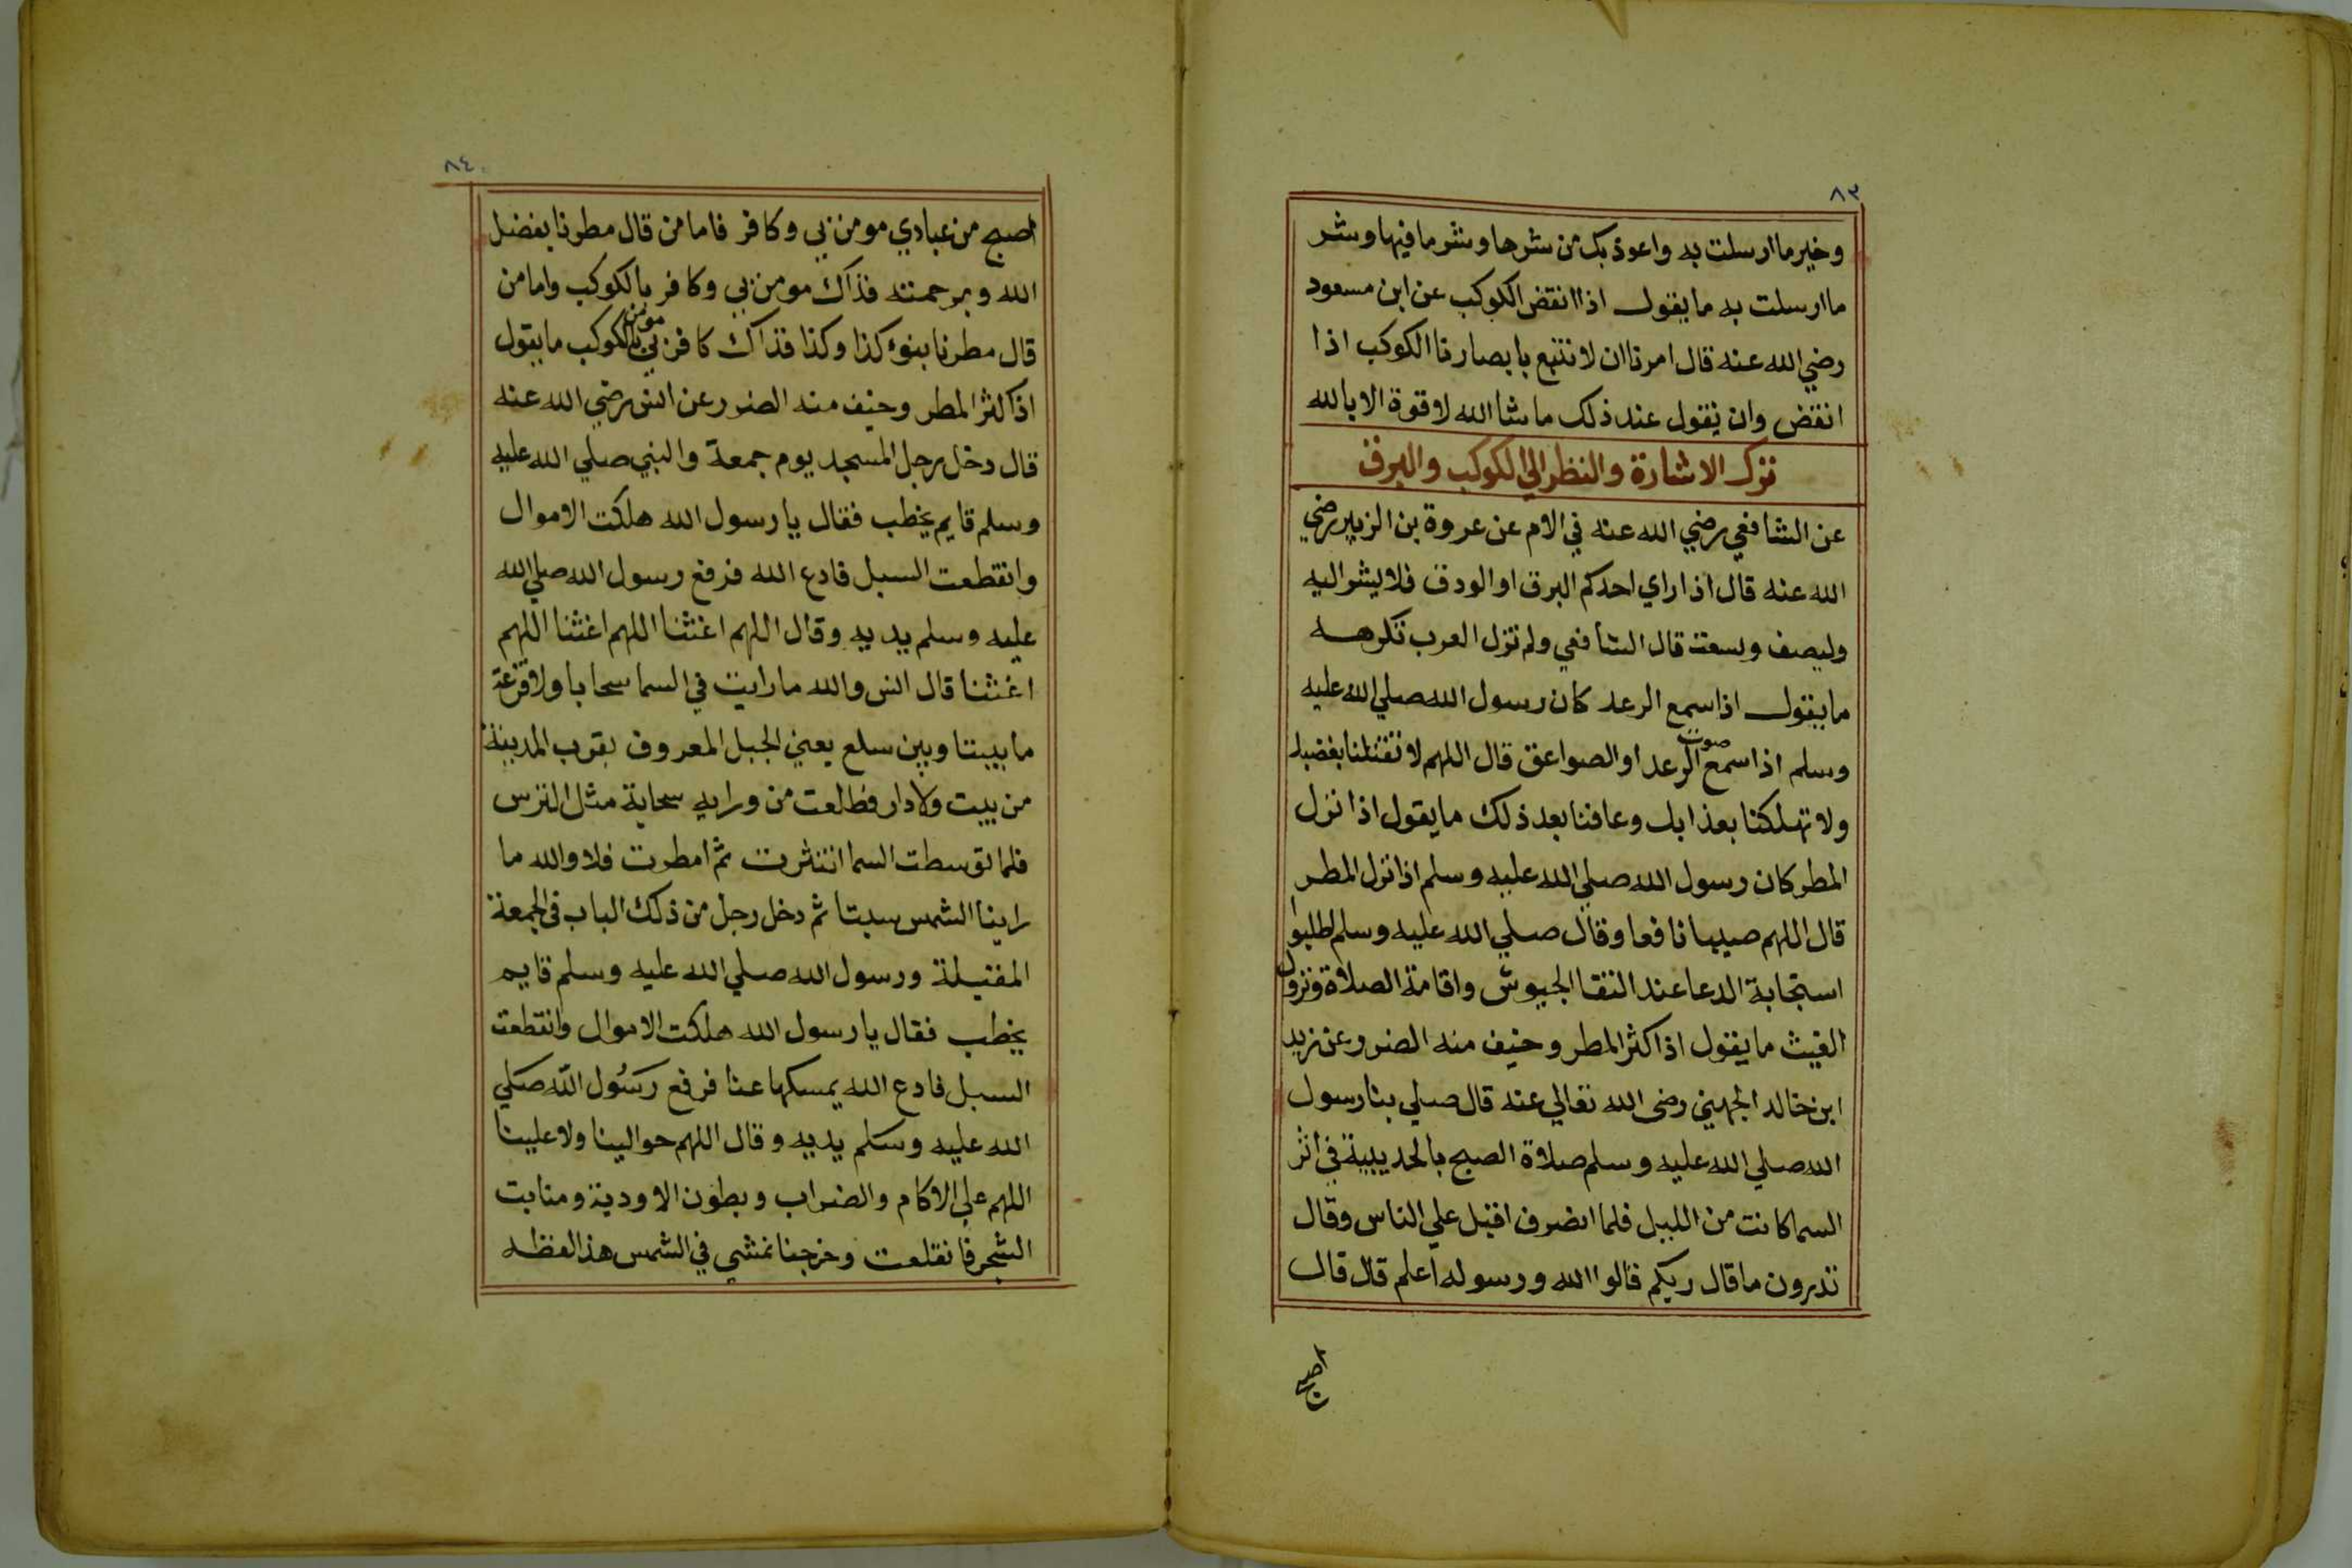 ٨٣
وخير ما ارسلت به واعوذ بك من شرها وشر ما فيها وشر
ما ارسلت به ما يقول اذا انقض الكوكب عن ابن مسعود
رضي الله عنه قال امرنا ان لا نتبع بابصارنا الكوكب اذا
انقض وان نقول عند ذلك ما شا الله لا قوة الا بالله
ترك الاشارة والنظر الي الكوكب والبرق
عن الشافعي رضي الله عنه في الام عن عروة بن الزبير رضي
الله عنه قال اذا راي احدكم البرق او الودق فلا يشر اليه
وليصف ولينعت قال الشافعي ولم تزل العرب تكرهه
ما يقول اذا سمع الرعد كان رسول الله صلي الله عليه
وسلم اذا سمع صوت الرعد او الصواعق قال اللهم لا تقتلنا بغضبك
ولا تهلكنا بعذابك وعافنا بعد ذلك ما يقول اذا نزل
المطر كان رسول الله صلي الله عليه وسلم اذا نزل المطر
قال اللهم صيبا نافعا وقال صلي الله عليه وسلم اطلبوا
استجابة الدعا عند التقا الجيوش واقامة الصلاة ونزول
الغيث ما يقول اذا كثر المطر وخيف منه الضرر عن زيد
ابن خالد الجهني رضى الله تعالي عنه قال صلي بنا رسول
الله صلي الله عليه وسلم صلاة الصبح بالحديبية في اثر
السما كانت من الليل فلما انصرف اقبل علي الناس وقال
تدرون ما قال ربكم قالوا الله ورسوله اعلم قال قال
اصبح
٨٤
اصبح من عبادي مومن بي وكافر فاما من قال مطرنا بفضل
الله وبرحمته فذاك مومن بي وكافر بالكوكب واما من
قال مطرنا بنوء كذا وكذا فذاك كافر بي مومن بالكوكب ما يقول
اذا كثر المطر وخيف منه الضرر عن انس رضي الله عنه
قال دخل رجل المسجد يوم جمعة والنبي صلي الله عليه
وسلم قايم يخطب فقال يا رسول الله هلكت الاموال
وانقطعت السبل فادع الله فرفع رسول الله صلي الله
عليه وسلم يديه وقال اللهم اغثنا اللهم اغثنا اللهم
اغثنا قال انس والله ما رايت في السما سحابا ولا قزعة
ما بيننا وبين سلع يعني الجبل المعروف بقرب المدينة
من بيت ولا دار فطلعت من ورايه سحابة مثل الترس
فلما توسطت السما انتثرت ثم امطرت فلا والله ما
راينا الشمس سبتا ثم دخل رجل من ذلك الباب فى الجمعة
المقبلة ورسول الله صلي الله عليه وسلم قايم
يخطب فقال يا رسول الله هلكت الاموال وانقطعت
السبل فادع الله يمسكها عنا فرفع رسول الله صلي
الله عليه وسلم يديه وقال اللهم حوالينا ولا علينا
اللهم علي الاكام والضراب وبطون الاودية ومنابت
الشجر فانقلعت وخرجنا نمشي في الشمس هذا لفظه